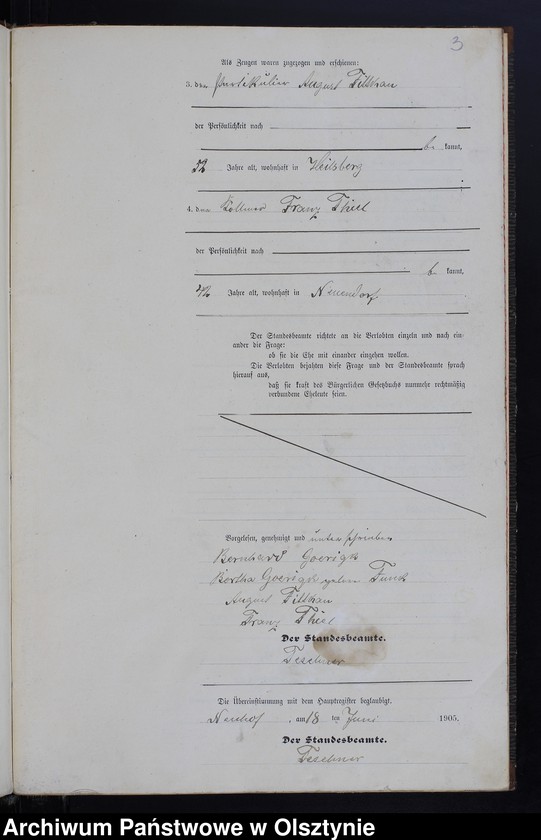 3
Als Zeugen waren zugezogen und erschienen:
3. den Partikülier August Tilthau
der Persönlichkeit nach
b. kannt,
52 Jahre alt, wohnhaft in Heilsberg
4. den Köllmer Franz Thiel
der Persönlichkeit nach
b kannt,
42 Jahre alt, wohnhaft in Neuendorf.
Der Standesbeamte richtete an die Verlobten einzeln und nach ein-
ander die Frage:
ob sie die Ehe mit einander eingehen wollen.
Die Verlobten bejahten diese Frage und der Standesbeamte sprach
hierauf aus,
daß sie kraft des Bürgerlichen Gesetzbuchs nunmehr rechtmäßig
verbundene Eheleute seien.
Vorgelesen, genehmigt und unterschrieben
Bernhard Goerigk
Bertha Goerigk geborn Funk
August Tilthau
Franz Thiel
Der Standesbeamte.
Teschner
Die Übereinstimmung mit dem Hauptregister beglaubigt.
Neuhof, am 18 ten Juni 1905.
Der Standesbeamte.
Teschner
Archiwum Państwowe w Olsztynie